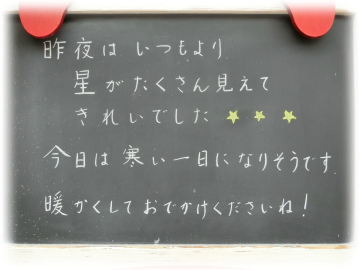 昨夜は いつもより
星がたくさん見えて
きれいでした ★ ★ ★
今日は寒い一日になりそうです
暖かくしておでかけくださいね!